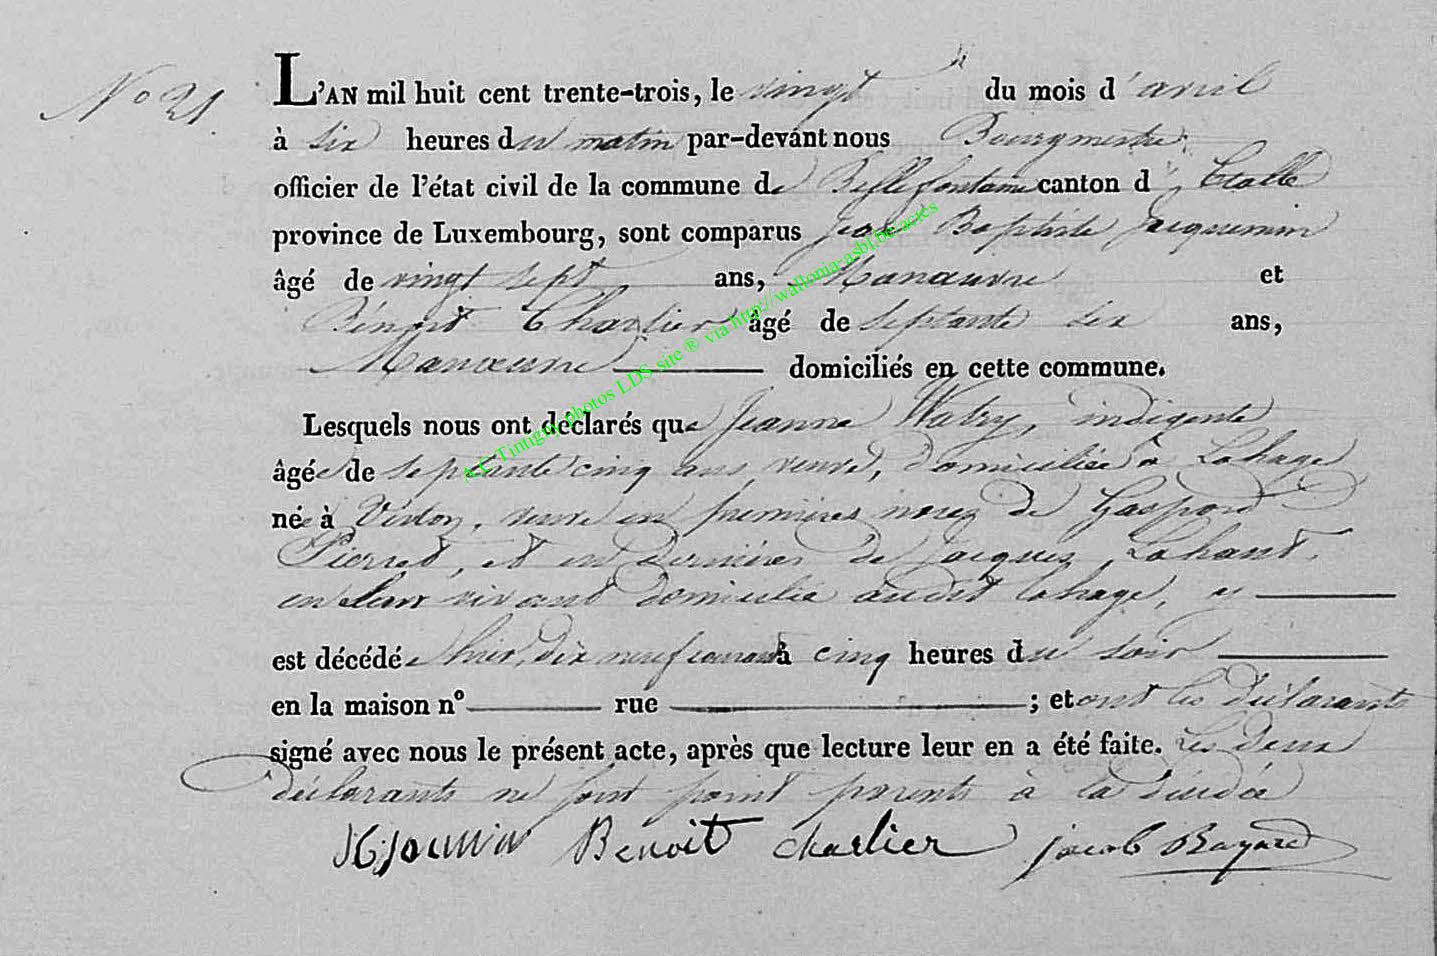 No 21.
L'AN mil huit cent trente-trois, le vingt du mois d'avril
à six heures du matin par-devant nous Bourgmestre,
officier de l'état civil de la commune de Bellefontaine canton d'Etalle
province de Luxembourg, sont comparus Jean Baptiste Jacquemin
âgé de vingt sept ans, Manœuvre et
Bénoit Charlier âgé de septante six ans,
Manœuvre domiciliés en cette commune.
Lesquels nous ont déclarés que Jeanne Watry, indigente
âgée de septante cinq ans, veuve, domiciliée à Lahage
née à Virton, veuve en premières noces de Gaspard
Pierret, et en dernières de Jacques Lahant,
en leur vivant domicilié audit Lahage,
est décédée hier, dix neuf courant à cinq heures du soir
en la maison nº rue ; et ont les déclarants
signé avec nous le présent acte, après que lecture leur en a été faite. Les deux
déclarants ne sont point parents à la décédée
Benoit Charlier Jacob Bayard
A.C Tintigny photos LDS site ® via http://wallonia-asbl.be/actes